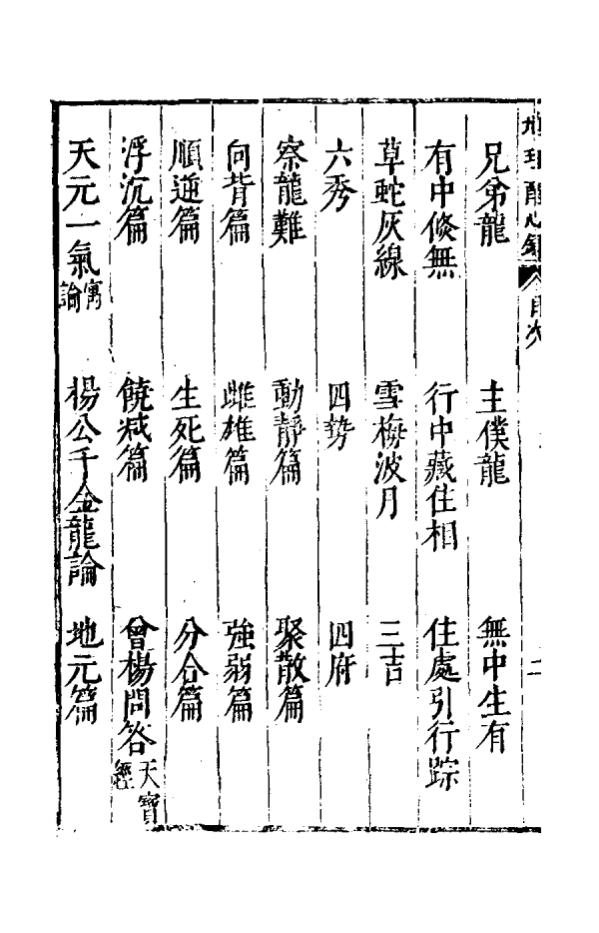 地理醒心錄 目次 二
兄弟龍 主僕龍 無中生有
有中倐無 行中藏住相 住處引行踪
草蛇灰線 雪梅波月 三吉
六秀 四勢 四府
察龍難 動靜篇 聚散篇
向背篇 雌雄篇 強弱篇
順逆篇 生死篇 分合篇
浮沉篇 饒减篇 曾楊問答 天寶經
天元一氣 寓論 楊公千金龍論 地元篇